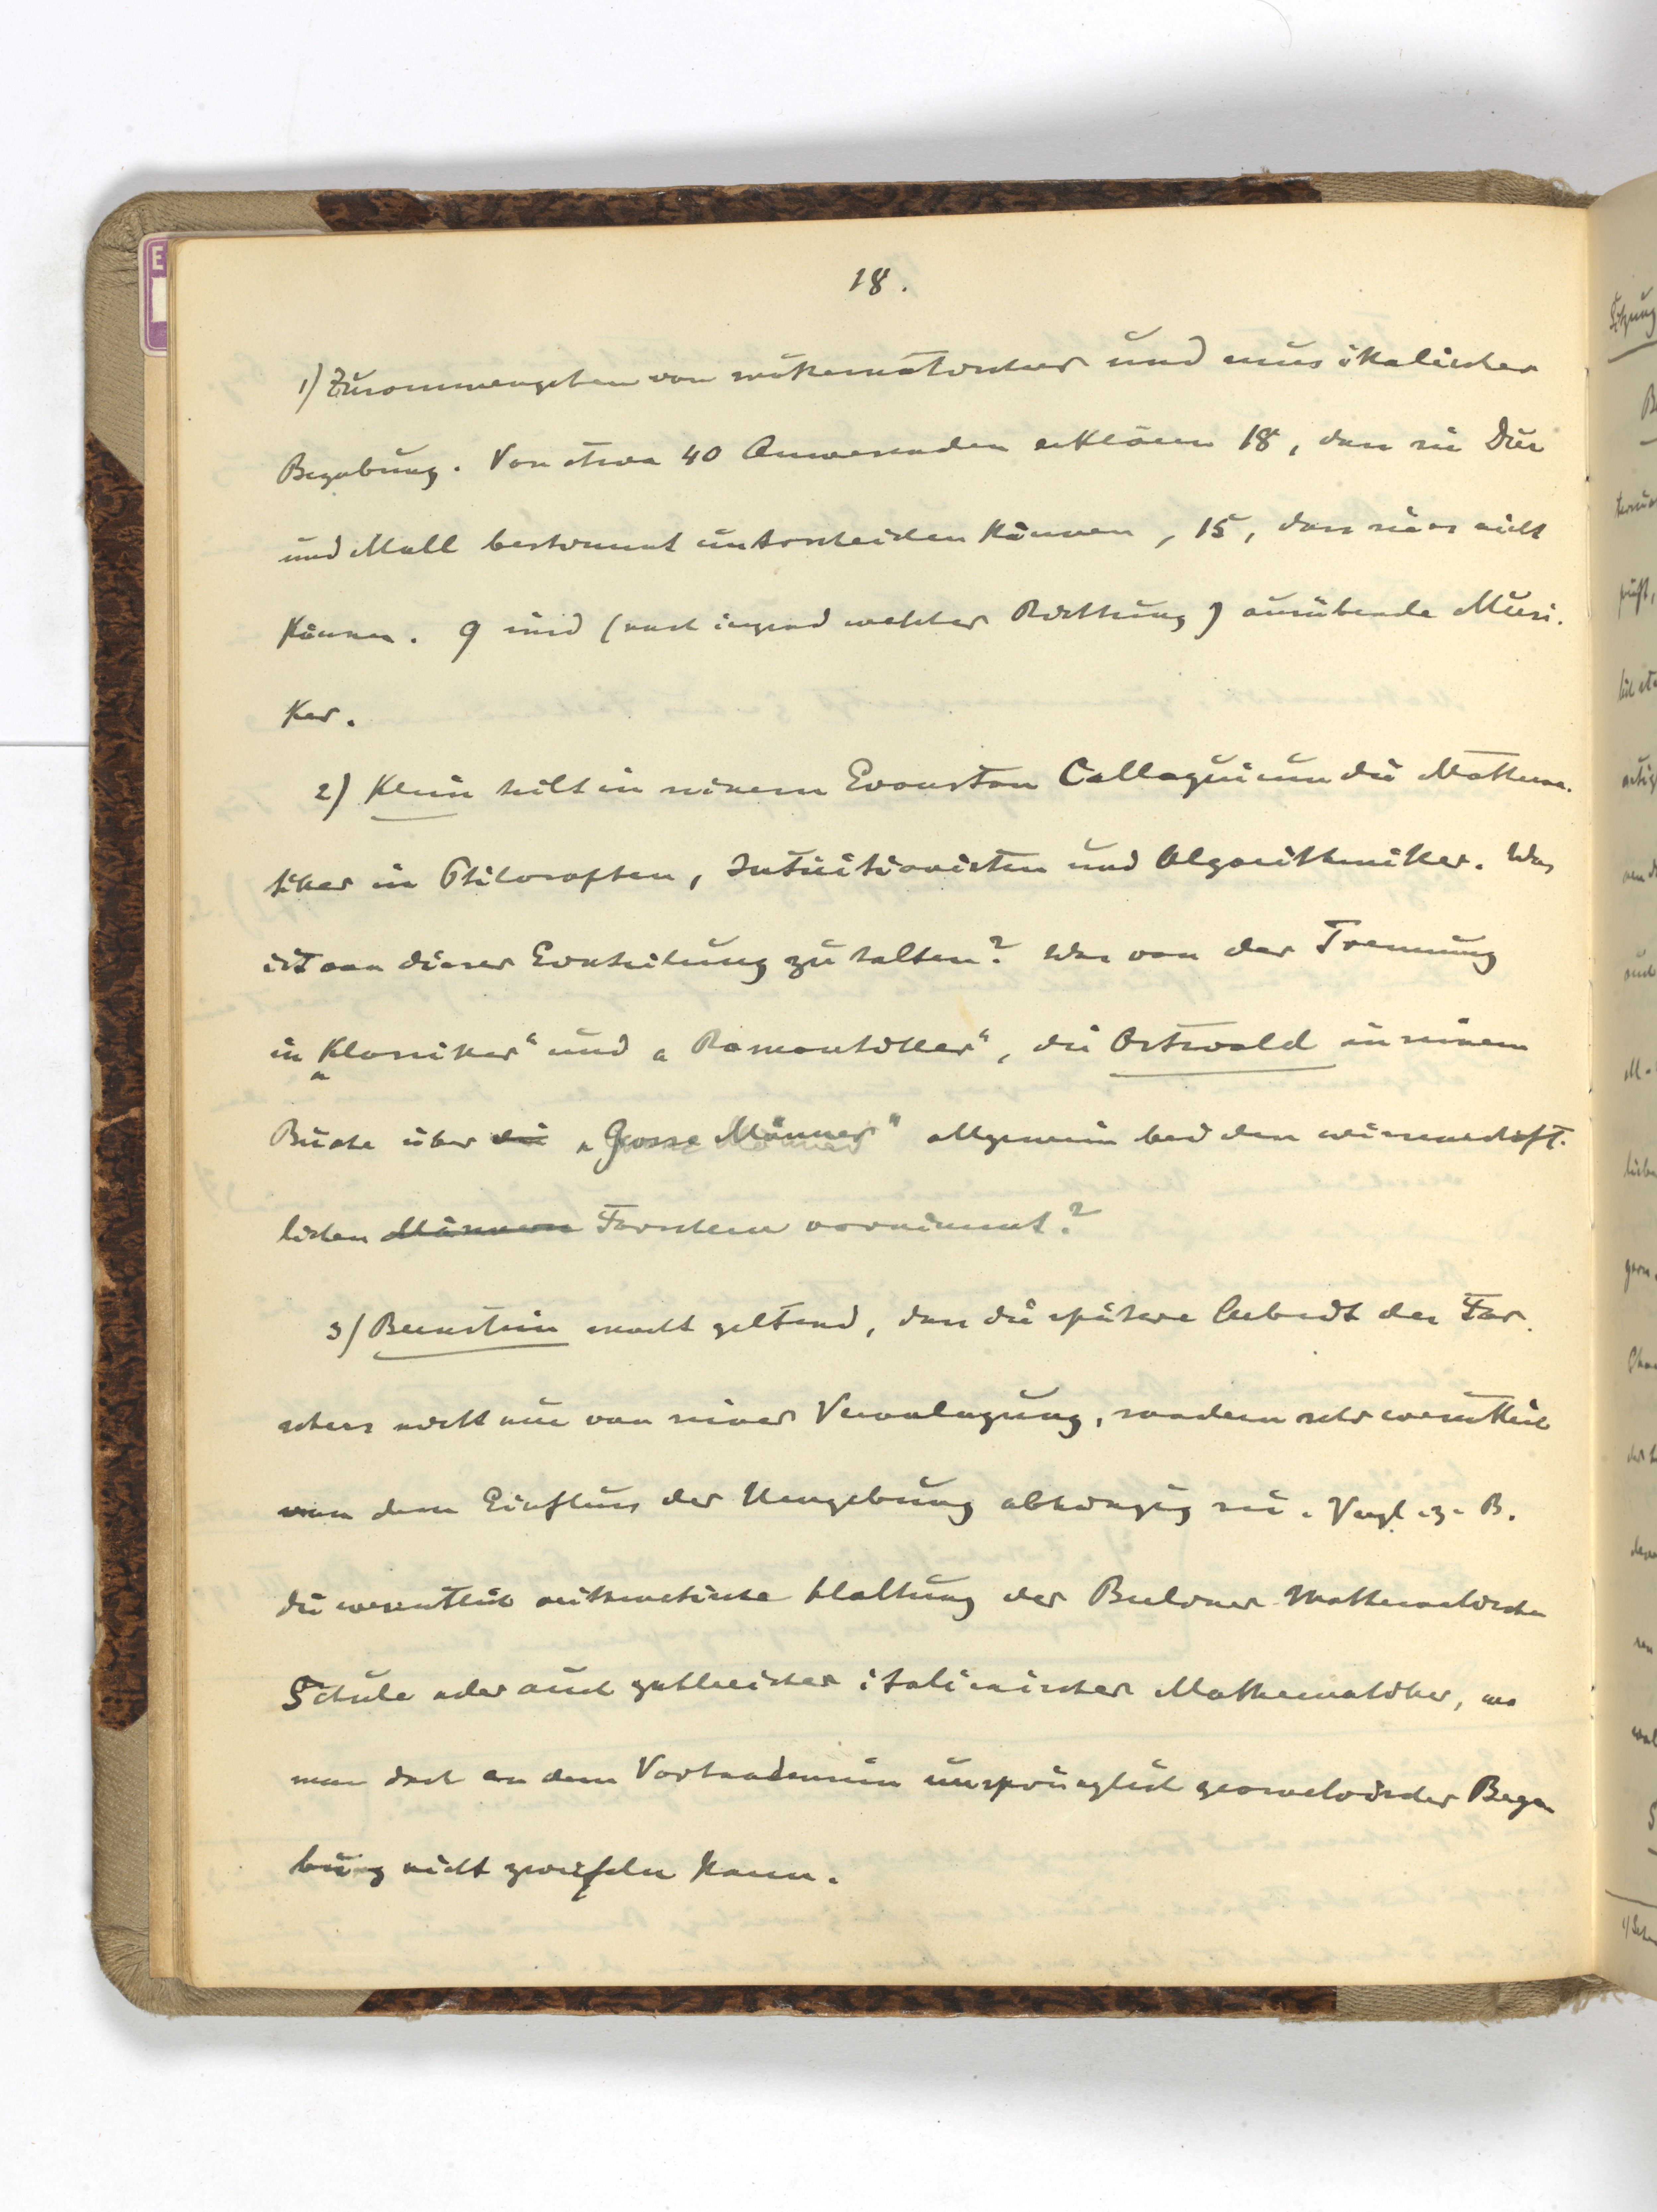 18.
1) Zusammengehen von mathematischer und musikalischer
Begabung. Von etwa 40 Anwesenden erklären 18, dass sie Dur
und Moll bestimmt unterscheiden können, 15, dass sie es nicht
können. 9 sind (nach irgend welcher Richtung) ausübende Musi-
ker.
2) Klein teilt in seinem Evanston Colloquium die Mathema-
tiker in Philosophen, Intuitionisten und Algorithmiker. Was
ist von dieser Einteilung zu halten? Was von der Trennung
in „Klassiker“ und „Romantiker“, die Ostwald in seinem
Buche über die „Grosse Männer“ allgemein bei den wissenschaft-
lichen Männern Forschern vornimmt?
3) Bernstein macht geltend, dass die spätere Arbeit des For-
schers nicht nur von seiner Veranlagung, sondern sehr wesentlich
von dem Einfluss der Umgebung abhängig sei. Vergl. z. B.
die wesentlich arithmetische Haltung der Berliner Mathematischen
Schule oder auch zahlreicher italienischer Mathematiker, wo
man doch an dem Vorhandensein ursprünglich geometrischer Bega-
bung nicht zweifeln kann.